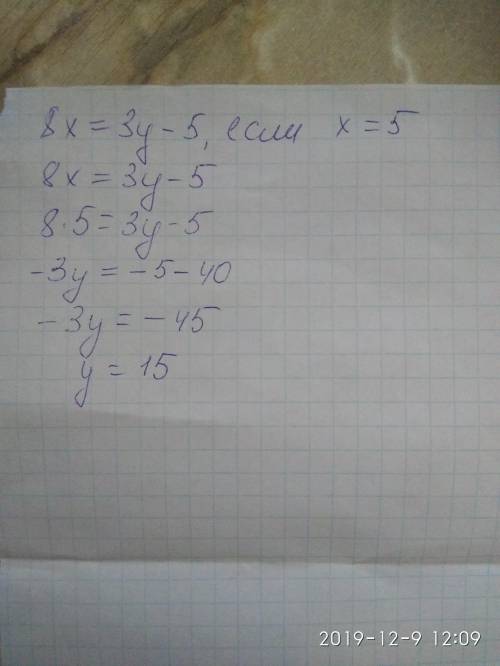 8x = 3y - 5, если x = 5
8x = 3y - 5
8·5 = 3y - 5
-3y = -5 - 40
-3y = -45
y = 15
2019-12-9 12:09